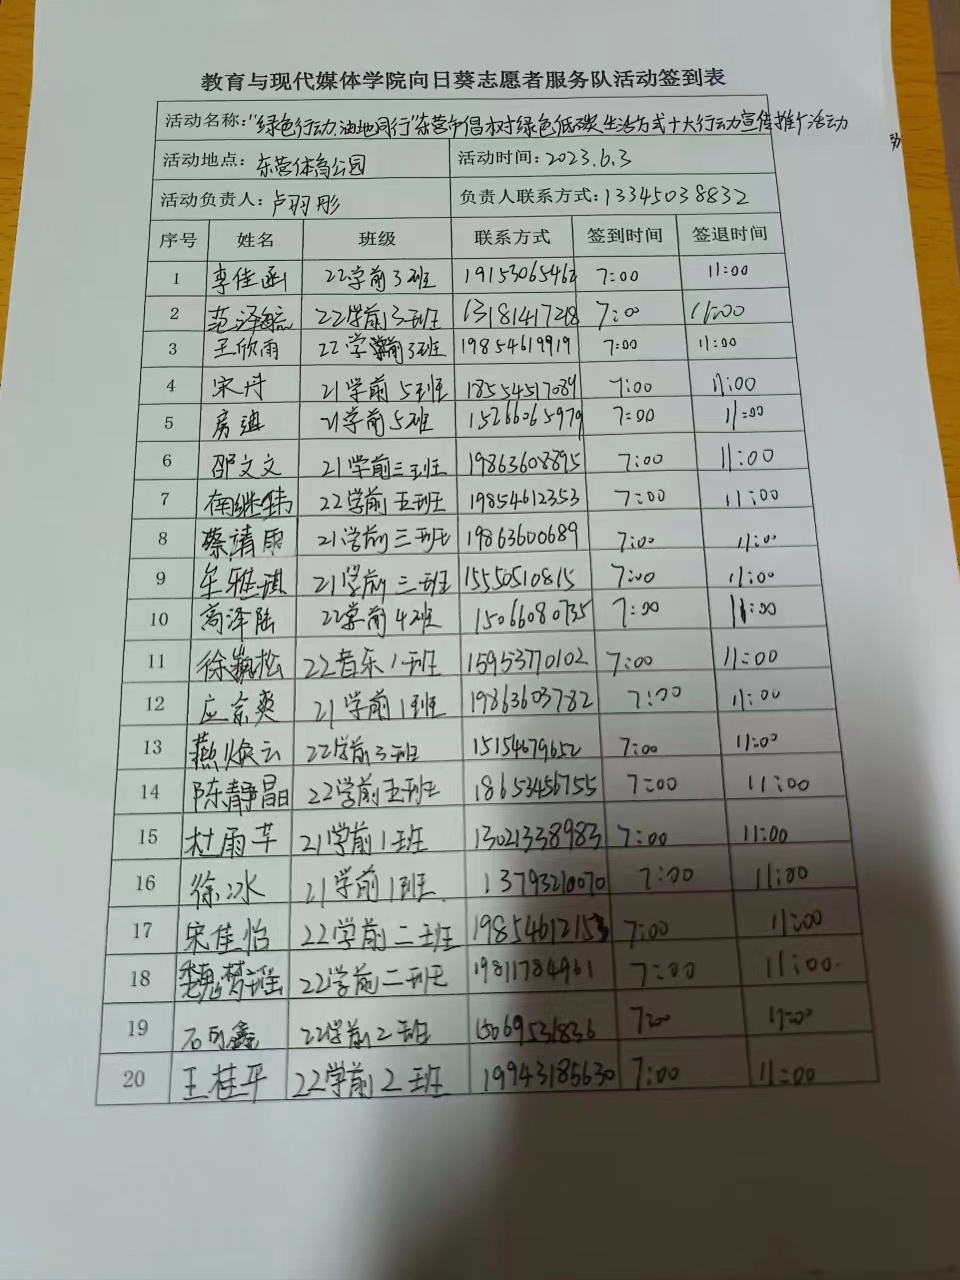 教育与现代媒体学院向日葵志愿者服务队活动签到表
活动名称：“绿色行动,油地同行”东营市倡树绿色低碳生活方式十大行动宣传推广活动
活动地点：东营体育公园 活动时间：2023.6.3
活动负责人：卢羽彤 负责人联系方式：13345038832
序号 姓名 班级 联系方式 签到时间 签退时间
1 李佳函 22学前3班 19153065462 7:00 11:00
2 范泽毓 22学前3班 13181417218 7:00 11:00
3 王欣雨 22学前3班 19854619919 7:00 11:00
4 宋丹 21学前5班 18554517089 7:00 11:00
5 房 21学前5班 15266065979 7:00 11:00
6 邵文文 21学前三班 19863608895 7:00 11:00
7 22学前五班 19854612353 7:00 11:00
8 蔡靖雨 21学前三班 19863600689 7:00 11:00
9 牟雅琪 21学前三班 15550510815 7:00 11:00
10 高泽陆 22学前4班 15066080735 7:00 11:00
11 徐巍松 22音乐1班 15953770102 7:00 11:00
12 应京爽 21学前1班 19863603782 7:00 11:00
13 燕焕云 22学前3班 15154679652 7:00 11:00
14 陈静晶 22学前五班 18653456755 7:00 11:00
15 杜雨芊 21学前1班 13021338983 7:00 11:00
16 徐冰 21学前1班. 13793210070 7:00 11:00
17 宋佳怡 22学前二班 19854612153 7:00 11:00
18 魏梦瑶 22学前二班 19811784961 7:00 11:00.
19 石可鑫 22学前2班 15069531836 7:00 11:00
20 王桂平 22学前2班 19943185630 7:00 11:00